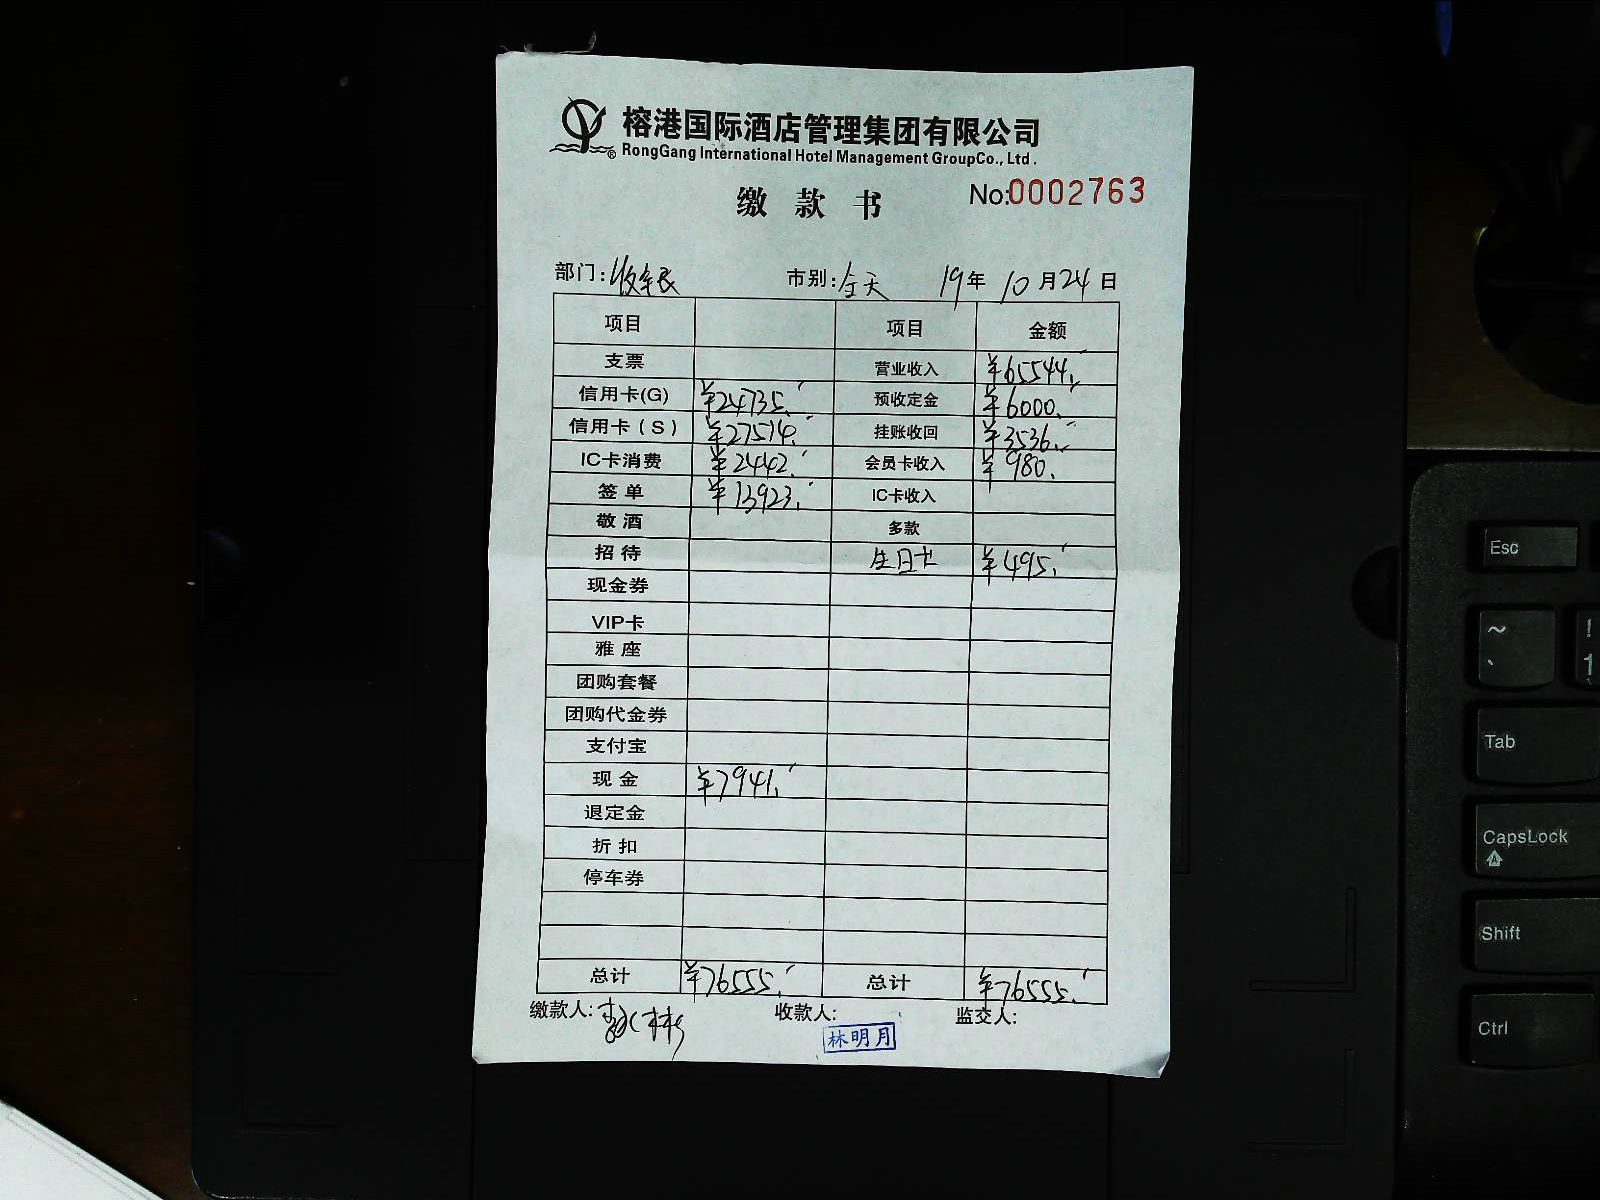 榕港国际酒店管理集团有限公司
RongGang International Hotel Management GroupCo., Ltd.
缴款书 No:0002763
部门: 市别:全天 19年10月24日
项目 项目 金额
支票 营业收入 ¥65544.
信用卡(G) ¥24735. 预收定金 ¥6000.
信用卡(S) ¥27514. 挂账收回 ¥3536.
IC卡消费 ¥2442. 会员卡收入 ¥980.
签单 ¥13923. IC卡收入
敬酒 多款
招待 生日卡 ¥495.
现金券
VIP卡
雅座
团购套餐
团购代金券
支付宝
现金 ¥7941.
退定金
折扣
停车券
总计 ¥76555. 总计 ¥76555.
缴款人: 收款人: 监交人:
林明月
Esc
~ !
` 1
Tab
CapsLock
A
Shift
Ctrl